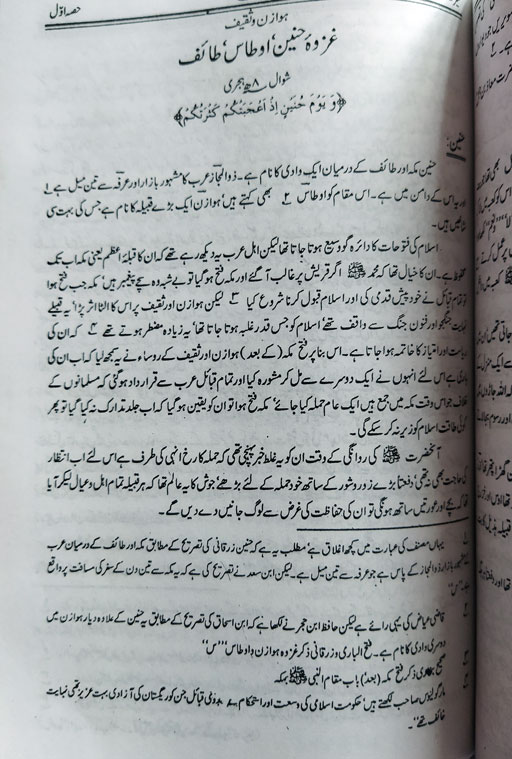 حصہ اوّل
ہوازن و ثقیف
غزوۂ حنین، اوطاس، طائف
شوال ۸ھ ہجری
﴿وَ یَوْمَ حُنَیْنٍ اِذْ اَعْجَبَتْكُمْ كَثْرَتُكُمْ﴾
حنین:
حنین مکہ اور طائف کے درمیان ایک وادی کا نام ہے۔ ذوالمجاز عرب کا مشہور بازار اور عرفہ سے تین میل ہے ۱
اور یہ اس کے دامن میں ہے۔ اس مقام کو اوطاس ۲ بھی کہتے ہیں، ہوازن ایک بڑے قبیلہ کا نام ہے جس کی بہت سی
شاخیں ہیں۔
اسلام کی فتوحات کا دائرہ گو وسیع ہوتا جاتا تھا لیکن اہل عرب یہ دیکھ رہے تھے کہ ان کا قبلۂ اعظم یعنی مکہ اب تک
محفوظ ہے۔ ان کا خیال تھا کہ محمد ﷺ اگر قریش پر غالب آگئے اور مکہ فتح ہوگیا تو بے شبہ وہ سچے پیغمبر ہیں، مکہ جب فتح ہوا
تو تمام قبائل نے خود پیش قدمی کی اور اسلام قبول کرنا شروع کیا ۳ لیکن ہوازن اور ثقیف پر اس کا الٹا اثر پڑا، یہ قبیلے
نہایت جنگجو اور فنون جنگ سے واقف تھے، اسلام کو جس قدر غلبہ ہوتا جاتا تھا، یہ زیادہ مضطر ہوتے تھے ۴ کہ ان کی
ریاست اور امتیاز کا خاتمہ ہوا جاتا ہے۔ اس بنا پر فتح مکہ (کے بعد) ہوازن اور ثقیف کے روساء نے یہ سمجھ لیا کہ اب ان کی
باری ہے اس لئے انہوں نے ایک دوسرے سے مل کر مشورہ کیا اور تمام قبائل عرب سے قرارداد ہوگئی کہ مسلمانوں کے
خلاف جو اس وقت مکہ میں جمع ہیں ایک عام حملہ کیا جائے، مکہ فتح ہوا تو ان کو یقین ہوگیا کہ اب جلد تدارک نہ کیا گیا تو پھر
کوئی طاقت اسلام کو زیر نہ کر سکے گی۔
آنحضرت ﷺ کی روانگی کے وقت ان کو یہ غلط خبر پہنچی تھی کہ حملہ کا رخ انہی کی طرف ہے اس لئے اب انتظار
کی حاجت بھی نہ تھی، دفعتاً بڑے زور و شور کے ساتھ خود حملہ کے لئے بڑھے، جوش کا یہ عالم تھا کہ ہر قبیلہ تمام اہل و عیال لیکر آیا
تھا کہ بچے اور عورتیں ساتھ ہونگی تو ان کی حفاظت کی غرض سے لوگ جانیں دے دیں گے۔
۱ یہاں مصنف کی عبارت میں کچھ اغلاق ہے، مطلب یہ ہے کہ حنین زرقانی کی تصریح کے مطابق مکہ اور طائف کے درمیان عرب
کے مشہور بازار ذوالمجاز کے پاس ہے جو عرفہ سے تین میل ہے۔ لیکن ابن سعد نے تصریح کی ہے کہ یہ مکہ سے تین دن کے سفر کی مسافت پر واقع
ہے ''س''
۲ قاضی عیاض کی یہی رائے ہے لیکن حافظ ابن حجر نے لکھا ہے کہ ابن اسحاق کی تصریح کے مطابق یہ حنین کے علاوہ دیار ہوازن میں
دوسری وادی کا نام ہے۔ فتح الباری و زرقانی ذکر غزوہ ہوازن و اوطاس ''س''
۳ صحیح بخاری ذکر فتح مکہ (بعد) باب مقام النبی ﷺ بمکہ
۴ مارگولیوس صاحب لکھتے ہیں، حکومت اسلامی کی وسعت اور استحکام سے وہ قبائل جن کو ریگستان کی آزادی بہت عزیز تھی نہایت
خائف تھے۔